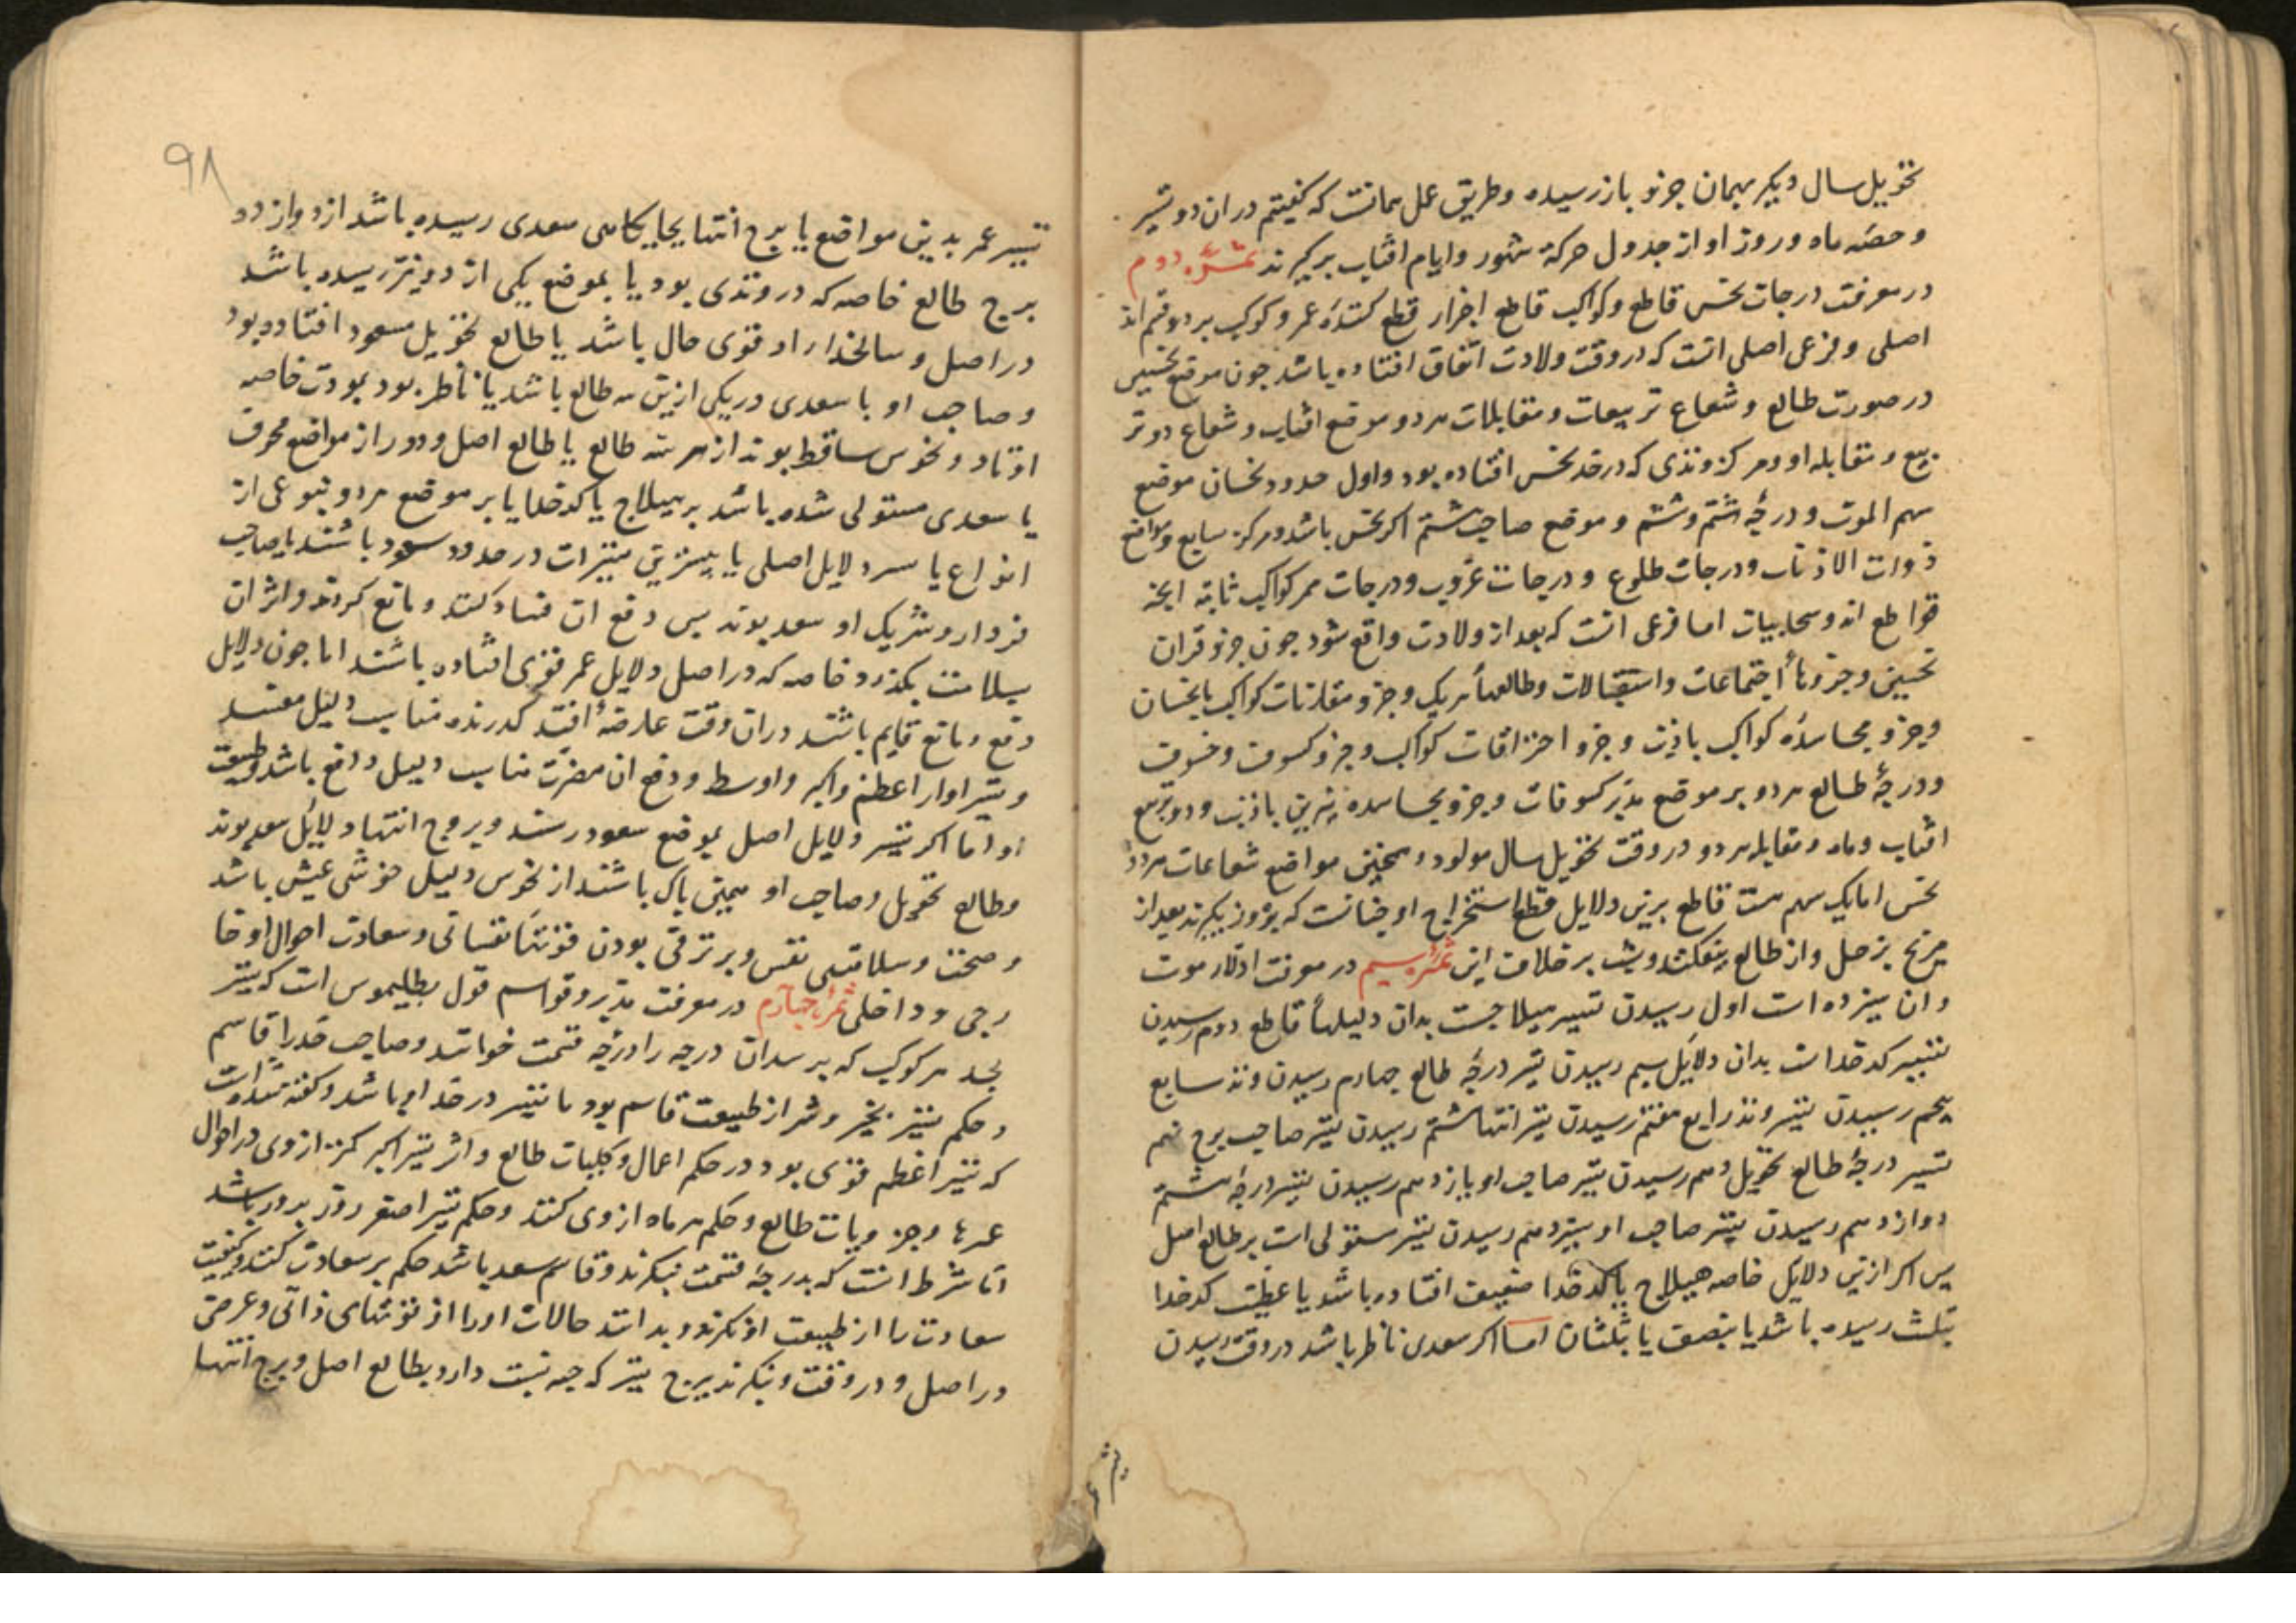 تحویل سال دیکر بهمان جزو باز رسیده و طریق عمل همانست که کفیتم در ان دو تسیر
و حصه ماه و روز او از جدول حرکة شهور و ایام افتاب برکیرند ثمرهٔ دوم
در معرفت درجات نحس قاطع و کواکب قاطع اجزار قطع کنندهٔ عمر و کوکب بر دو قسم اند
اصلی و فرعی اصلی انست که در وقت ولادت اتفاق افتاده باشد جون موقع نحسین
در صورت طالع و شعاع تربیعات و مقابلات هر دو و موقع افتاب و شعاع دو تر
بیع و مقابله او و مرکز وتدی که در حد نحس افتاده بود و اول حدود نحسان موضع
سهم الموت و درجهٔ هشتم و ششم و موضع صاحب هشتم اکر نحس باشد و مرکز سابع و مواضع
ذوات الاذناب و درجات طلوع و درجات غروب و درجات ممر کواکب ثابته انجه
قواطع اند و سحابیات اما فرعی انست که بعد از ولادت واقع شود جون جزو قران
نحسین و جزوهأ اجتماعات و استقبالات و طالعهأ هر یک و جزو مقارنات کواکب با نحسان
و جزو مجاسدهٔ کواکب با ذنب و جزو احتراقات کواکب و جزو کسوف و خسوف
و درجهٔ طالع هر دو بر موضع مدبر کسوفات و جزو مجاسده نیرین با ذنب و دو تربیع
افتاب و ماه و مقابله هر دو در وقت تحویل سال مولود و همجنین مواضع شعاعات هر دو
نحس اما یک سهم هست قاطع برین دلایل قطع استخراج او جنانست که بروز بکیرند بعد از
مریخ بزحل و از طالع بیفکنند و بشب بر خلاف این ثمرهٔ سیم در معرفت ادلار موت
و ان سیزده است اول رسیدن تسییر هیلاجست بدان دلیلهأ قاطع دوم رسیدن
تسییر کدخداست بدان دلایل سیم رسیدن تسیر درجهٔ طالع جهارم رسیدن وتد سابع
پنجم رسیدن تسیر وتد رابع هفتم رسیدن تسیر انتها هشتم رسیدن تسیر صاحب برج نهم
تسییر درجهٔ طالع تحویل دهم رسیدن تسیر صاحب او یازدهم رسیدن تسیر درجهٔ هشتم
دوازدهم رسیدن تسیر صاحب او سیزدهم رسیدن تسیر مستولی است بر طالع اصل
بس اکر ازین دلایل خاصه هیلاج یا کدخدا ضعیف افتاده باشد یا عطیت کدخدا
بثلث رسیده باشد یا بنصف یا بثلثان اما اکر سعدی ناظر باشد در وقت رسیدن
۹۸
تسییر عمر بدین مواضع یا برج انتها بجایکاهی سعدی رسیده باشد از دوازده
برج طالع خاصه که در وتدی بود یا بموضع یکی از دو نیر رسیده باشد
در اصل و سالخدار او قوی حال باشد یا طالع تحویل مسعود افتاده بود
و صاحب او با سعدی در یکی ازین سه طالع باشد یا ناظر بود بمودت خاصه
اوتاد و نحوس ساقط بوند از هر سه طالع یا طالع اصل و دور از مواضع محرف
یا سعدی مستولی شده باشد بر هیلاج یا کدخدا یا بر موضع هر دو بنوعی از
انواع یا سر دلایل اصلی یا بیشترین تسیرات در حدود سعود باشند یا صاحب
فردار و شریک او سعد بوند بس دفع ان فساد کنند و مانع کردند و اثر ان
بسلامت بکذرد خاصه که در اصل دلایل عمر قوی افتاده باشند اما جون دلایل
دفع و مانع قایم باشند در ان وقت عارضهٔ افتد کذرنده مناسب دلیل مفسد
و تسیر ادوار اعظم و اکبر و اوسط و دفع ان مضرت مناسب دلیل دافع باشد و طبیعت
او اما اکر تسیر دلایل اصل بموضع سعود رسند و بروج انتها و لایل سعد بوند
و طالع تحویل و صاحب او همین پاک باشند از نحوس دلیل خوشی عیش باشد
و صحت و سلامتی نفس و بر ترقی بودن قوتهأ نفسانی و سعادت احوال او خا
رجی و داخلی ثمرهٔ جهارم در معرفت مدبر و قواسم قول بطلیموس است که تسیر
بحد هر کوکب که برسد ان درجه را درجهٔ قسمت خوانند و صاحب حد را قاسم
و حکم تسیر بخیر و شر از طبیعت قاسم بود تا تسیر در حد او باشد و کفته شده است
که تسیر اعظم قوی بود در حکم اعمال و کلیات طالع و اثر تسیر اکبر کمتر از وی در احوال
عمرها و جزویات طالع و حکم هر ماه از وی کنند و حکم تسیر اصغر روز بروز باشد
اما شرط انست که بدرجهٔ قسمت نیکرند و قاسم سعد باشد حکم بر سعادت کنند و کیفیت
سعادت را از طبیعت او نکرند و بدانند حالات او را از قوتهای ذاتی و عرضی
در اصل و در وقت و نیکرند ببرج تسیر که جه نسبت دارد بطالع اصل و برج انتها